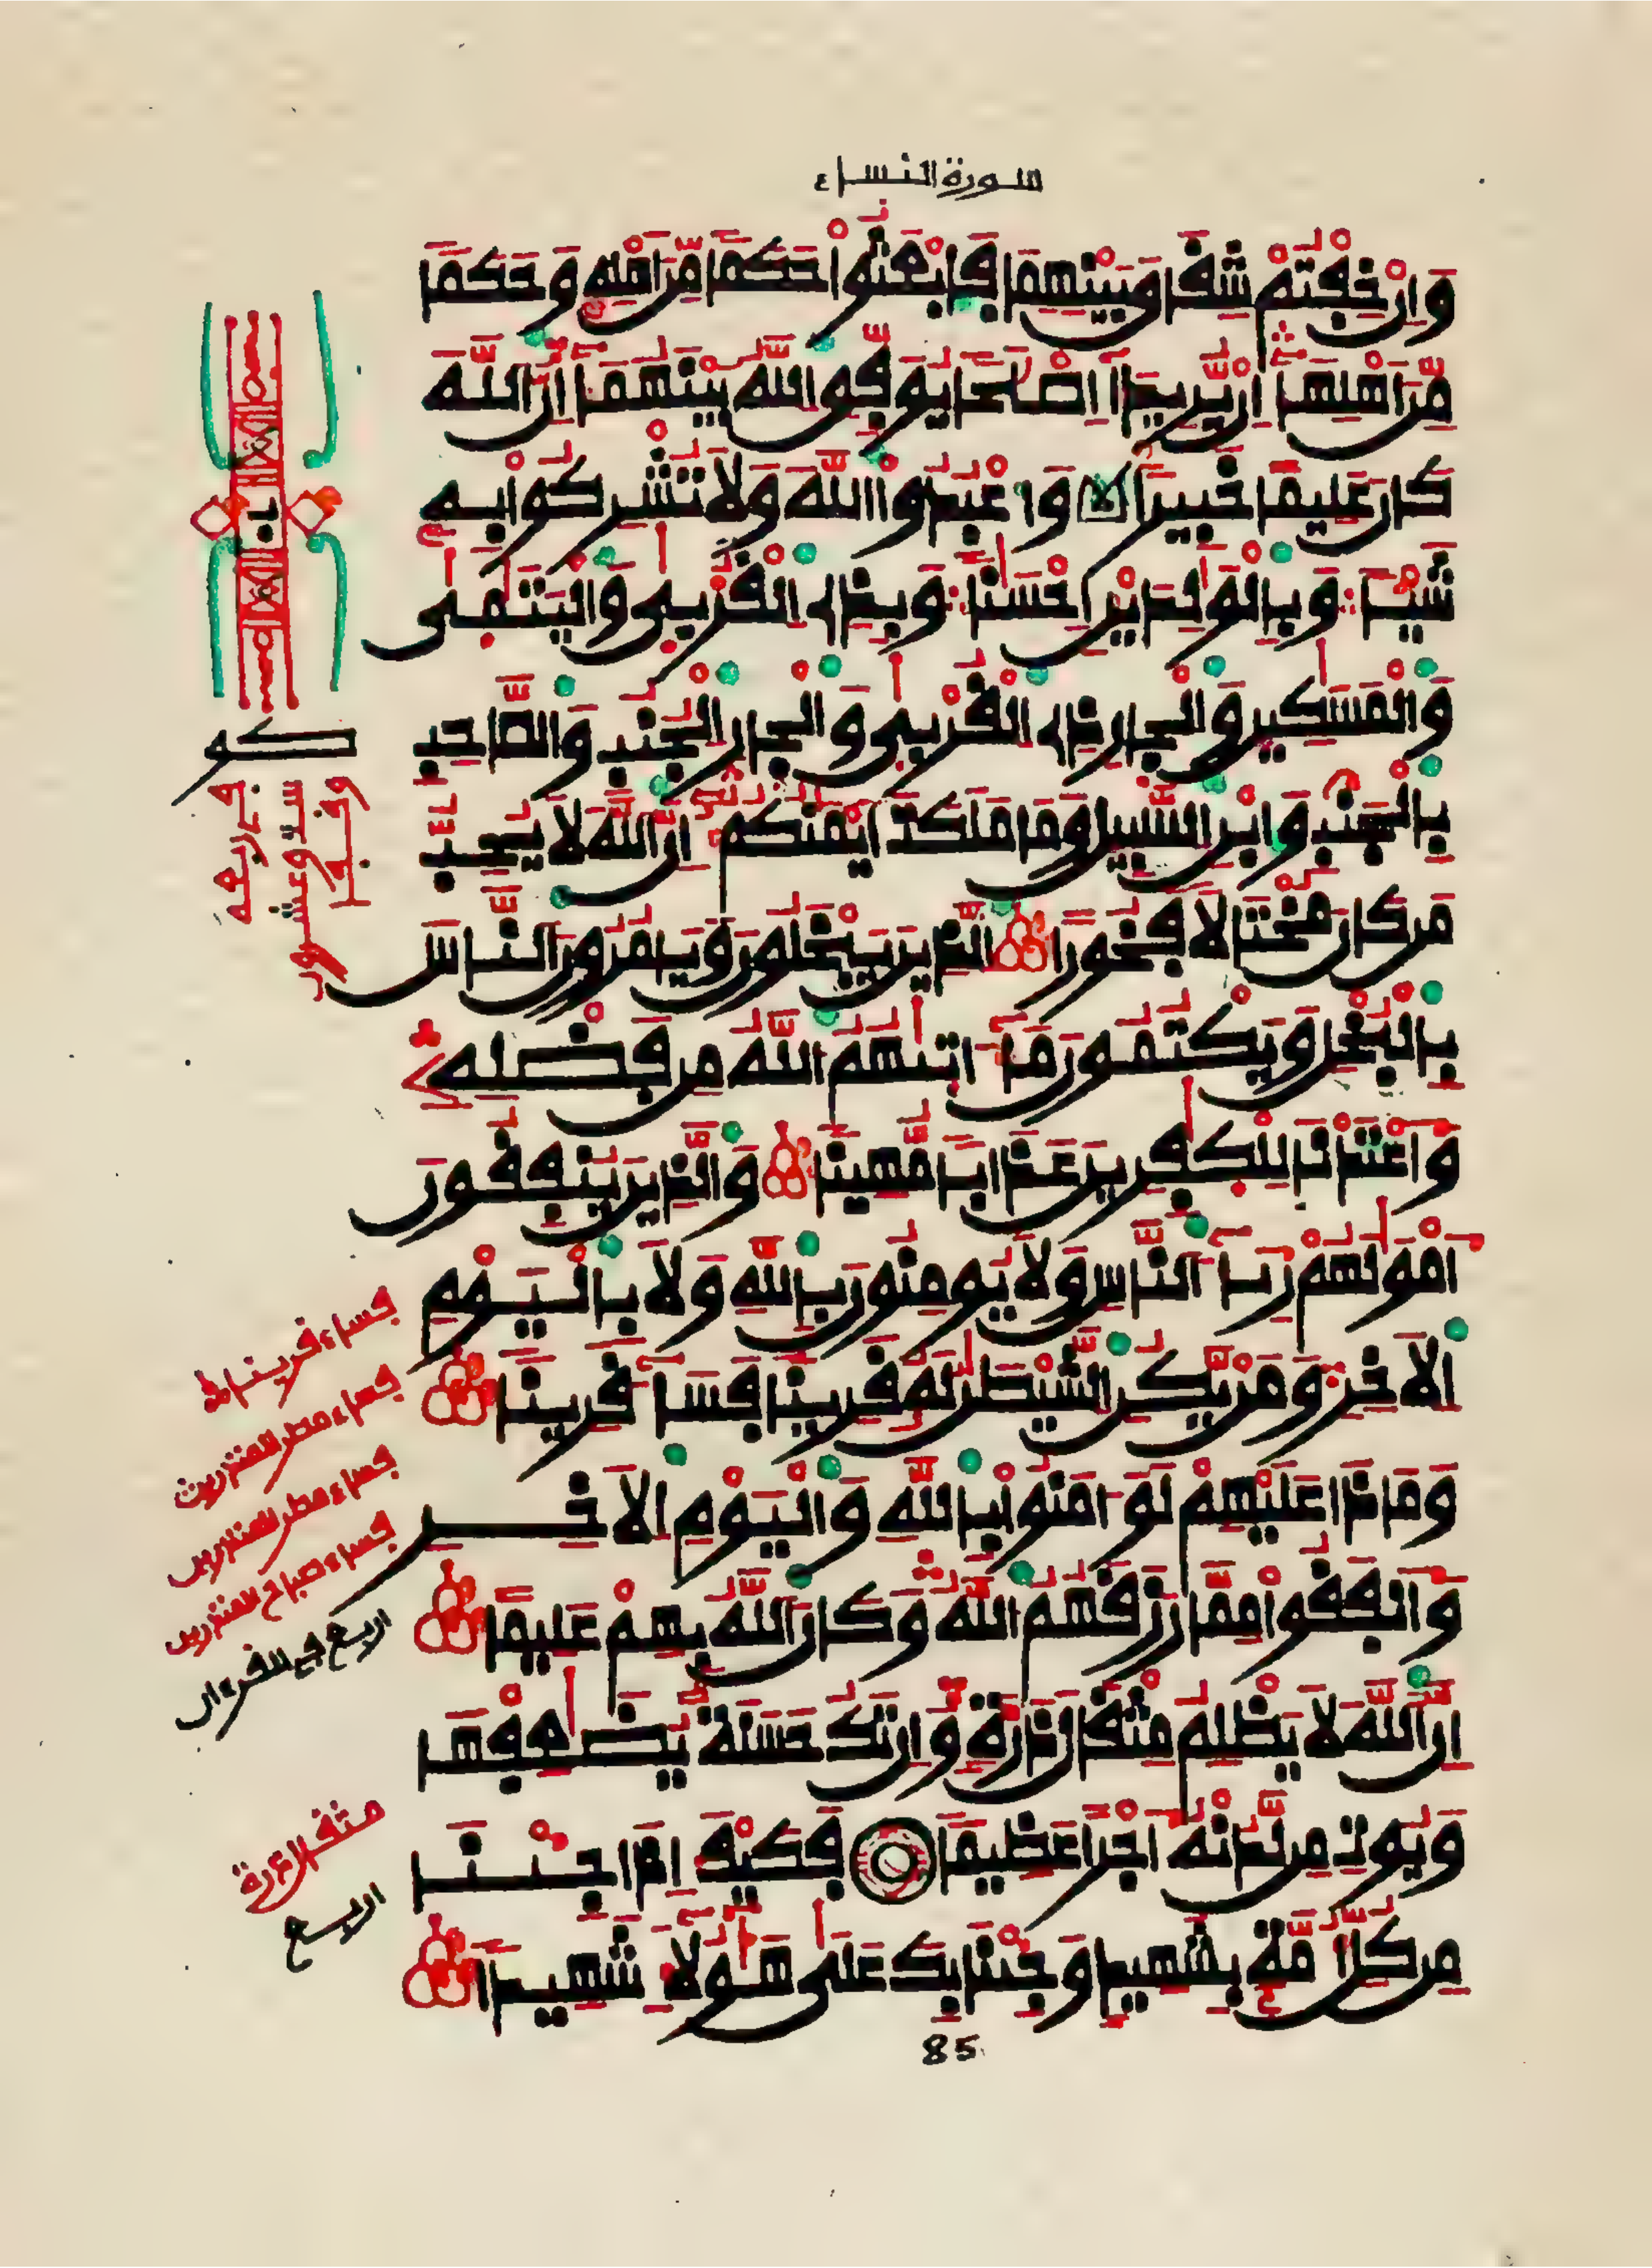 سورة النساء
وَإِنْ خِفْتُمْ شِقَاقَ بَيْنِهِمَا فَابْعَثُواْ حَكَمًا مِّنَ اَهْلِهِ وَحَكَمًا
مِّنَ اَهْلِهَا إِنْ يُّرِيدَا إِصْلَحًا يُوَفِّقِ اللَّهُ بَيْنَهُمَا إِنَّ اللَّهَ
كَانَ عَلِيمًا خَبِيرًا وَاعْبُدُواْ اللَّهَ وَلَا تُشْرِكُواْ بِهِ
شَيْـًٔا وَبِالْوَلِدَيْنِ إِحْسَنًا وَبِذِي الْقُرْبَى وَالْيَتَمَى
وَالْمَسَكِينِ وَالْجَارِ ذِي الْقُرْبَى وَالْجَارِ الْجُنُبِ وَالصَّاحِبِ
بِالْجَنْبِ وَابْنِ السَّبِيلِ وَمَا مَلَكَتَ اَيْمَنُكُمْ إِنَّ اللَّهَ لَا يُحِبُّ
مَن كَانَ مُخْتَالًا فَخُورًا الَّذِينَ يَبْخَلُونَ وَيَامُرُونَ النَّاسَ
بِالْبُخْلِ وَيَكْتُمُونَ مَا ءَاتَىهُمُ اللَّهُ مِن فَضْلِهِ
وَأَعْتَدْنَا لِلْكَفِرِينَ عَذَابًا مُّهِينًا وَالَّذِينَ يُنفِقُونَ
أَمْوَلَهُمْ رِئَاءَ النَّاسِ وَلَا يُومِنُونَ بِاللَّهِ وَلَا بِالْيَوْمِ
الَاخِرِ وَمَنْ يَّكُنِ الشَّيْطَنُ لَهُ قَرِينًا فَسَاءَ قَرِينًا
وَمَاذَا عَلَيْهِمْ لَوَ اٰمَنُواْ بِاللَّهِ وَالْيَوْمِ الَاخِرِ
وَأَنفَقُواْ مِمَّا رَزَقَهُمُ اللَّهُ وَكَانَ اللَّهُ بِهِمْ عَلِيمًا
إِنَّ اللَّهَ لَا يَظْلِمُ مِثْقَالَ ذَرَّةٍ وَإِن تَكُ حَسَنَةٌ يُضَعِفْهَا
وَيُوتِ مِن لَّدُنْهُ أَجْرًا عَظِيمًا فَكَيْفَ إِذَا جِئْنَا
مِن كُلِّ أُمَّةٍ بِشَهِيدٍ وَجِئْنَا بِكَ عَلَى هَؤُلَاءِ شَهِيدًا
85
وقفا
ستا وعشرون
فساء قرينا
فساء مطر المنذرين
فساء مطر المنذرين
فساء صباح المنذرين
اربع في القرءان
مثقال ذرة
اربع